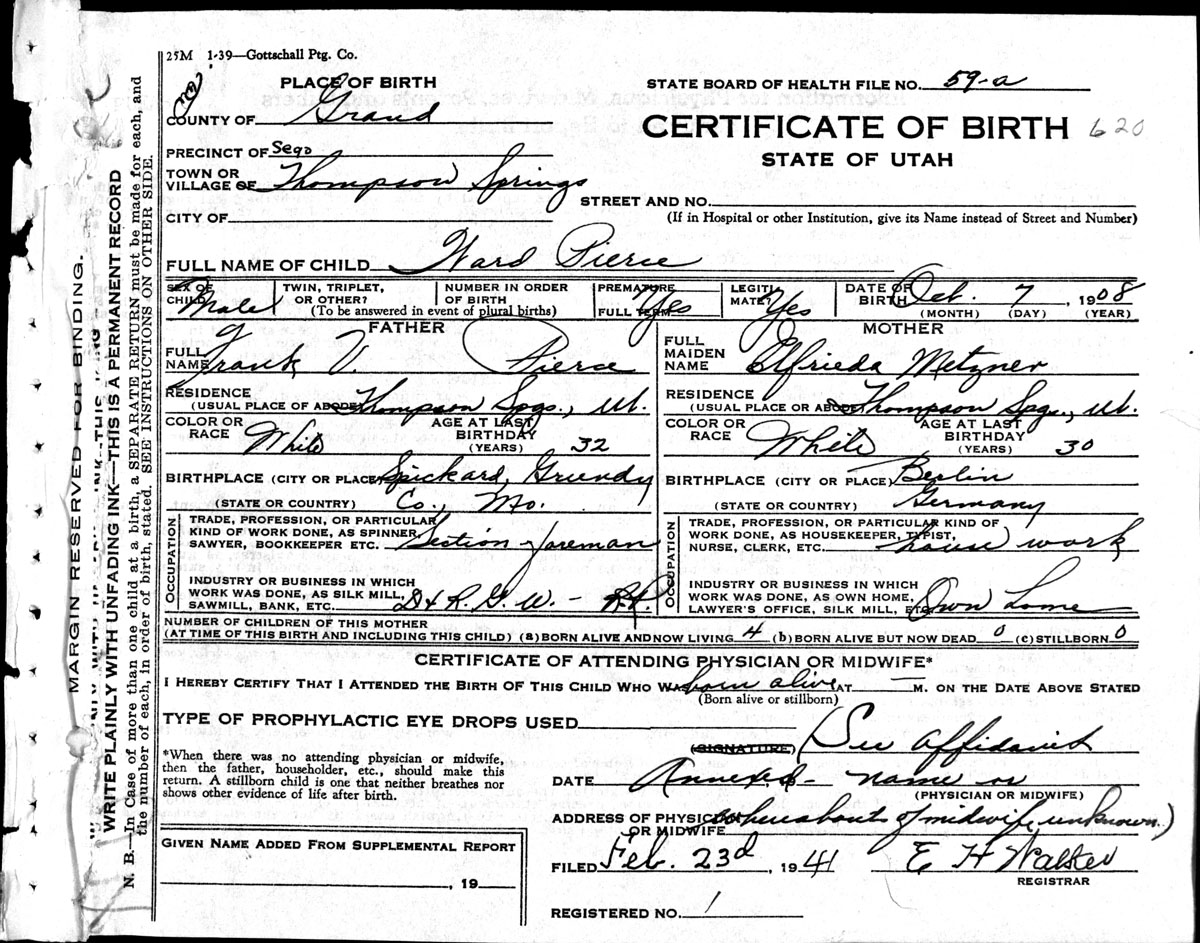 25M 1-39—Gottschall Ptg. Co.
PLACE OF BIRTH
STATE BOARD OF HEALTH FILE NO. 59-a
COUNTY OF Grand
CERTIFICATE OF BIRTH 620
PRECINCT OF Sego
STATE OF UTAH
TOWN OR
VILLAGE OF Thompson Springs
STREET AND NO.
(If in Hospital or other Institution, give its Name instead of Street and Number)
CITY OF
FULL NAME OF CHILD Ward Pierce
SEX OF CHILD Male
TWIN, TRIPLET, OR OTHER?
NUMBER IN ORDER OF BIRTH
(To be answered in event of plural births)
PREMATURE
FULL TERM Yes
LEGITI MATE? Yes
DATE OF BIRTH Oct. 7, 1908
(MONTH) (DAY) (YEAR)
FATHER
FULL NAME Frank V. Pierce
RESIDENCE
(USUAL PLACE OF ABODE) Thompson Spgs., Ut.
COLOR OR RACE White
AGE AT LAST BIRTHDAY (YEARS) 32
BIRTHPLACE (CITY OR PLACE) Spickard, Grundy
(STATE OR COUNTRY) Co., Mo.
OCCUPATION
TRADE, PROFESSION, OR PARTICULAR
KIND OF WORK DONE, AS SPINNER,
SAWYER, BOOKKEEPER ETC. Section foreman
INDUSTRY OR BUSINESS IN WHICH
WORK WAS DONE, AS SILK MILL,
SAWMILL, BANK, ETC. D & R. G. W. - R.R.
MOTHER
FULL MAIDEN NAME Elfrieda Metzner
RESIDENCE
(USUAL PLACE OR ABODE) Thompson Spgs., Ut.
COLOR OR RACE White
AGE AT LAST BIRTHDAY (YEARS) 30
BIRTHPLACE (CITY OR PLACE) Berlin
(STATE OR COUNTRY) Germany
OCCUPATION
TRADE, PROFESSION, OR PARTICULAR KIND OF
WORK DONE, AS HOUSEKEEPER, TYPIST,
NURSE, CLERK, ETC. house work
INDUSTRY OR BUSINESS IN WHICH
WORK WAS DONE, AS OWN HOME,
LAWYER'S OFFICE, SILK MILL, ETC. Own home
NUMBER OF CHILDREN OF THIS MOTHER
(AT TIME OF THIS BIRTH AND INCLUDING THIS CHILD) (a) BORN ALIVE AND NOW LIVING 4 (b) BORN ALIVE BUT NOW DEAD 0 (c) STILLBORN 0
CERTIFICATE OF ATTENDING PHYSICIAN OR MIDWIFE*
I HEREBY CERTIFY THAT I ATTENDED THE BIRTH OF THIS CHILD WHO WAS born alive AT — M. ON THE DATE ABOVE STATED
(Born alive or stillborn)
TYPE OF PROPHYLACTIC EYE DROPS USED
*When there was no attending physician or midwife,
then the father, householder, etc., should make this
return. A stillborn child is one that neither breathes nor
shows other evidence of life after birth.
(SIGNATURE) (See affidavit
DATE Annexed - name or
(PHYSICIAN OR MIDWIFE)
ADDRESS OF PHYSICIAN
OR MIDWIFE whereabouts of midwife unknown.)
GIVEN NAME ADDED FROM SUPPLEMENTAL REPORT
, 19
FILED Feb. 23d, 1941 E H Walster
REGISTRAR
REGISTERED NO. 1
MARGIN RESERVED FOR BINDING.
WRITE PLAINLY WITH UNFADING INK—THIS IS A PERMANENT RECORD
N. B.—In Case of more than one child at a birth, a SEPARATE RETURN must be made for each, and
the number of each, in order of birth, stated. SEE INSTRUCTIONS ON OTHER SIDE.